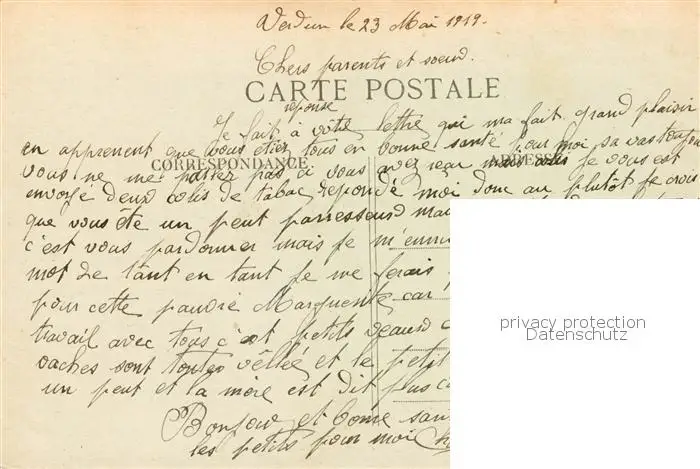 Verdun le 23 Mai 1919.
Chers parents et soeur.
CARTE POSTALE
reponse
Je fait à vôtre lettre qui ma fait grand plaisir
en apprenent que vous étiez tous en bonne santé pour moi sa vas toujours
CORRESPONDANCE
ADRESSE
vous ne me parlez pas si vous avez reçu mes colis je vous est
envoyé deux colis de tabac reponde moi donc au plutôt je crois
que vous ête un peut parresseuse mai
c'est vous pardonner mais je m'ennui
mot de tant en tant je me ferais
pour cette pauvre Marguerite car
travail avec tous c'est petits veaux
vaches sont toutes vêllée et le petit
un peut et la mère est dit plus
Bonjour et bonne san
les petits pour moi
privacy protection
Datenschutz